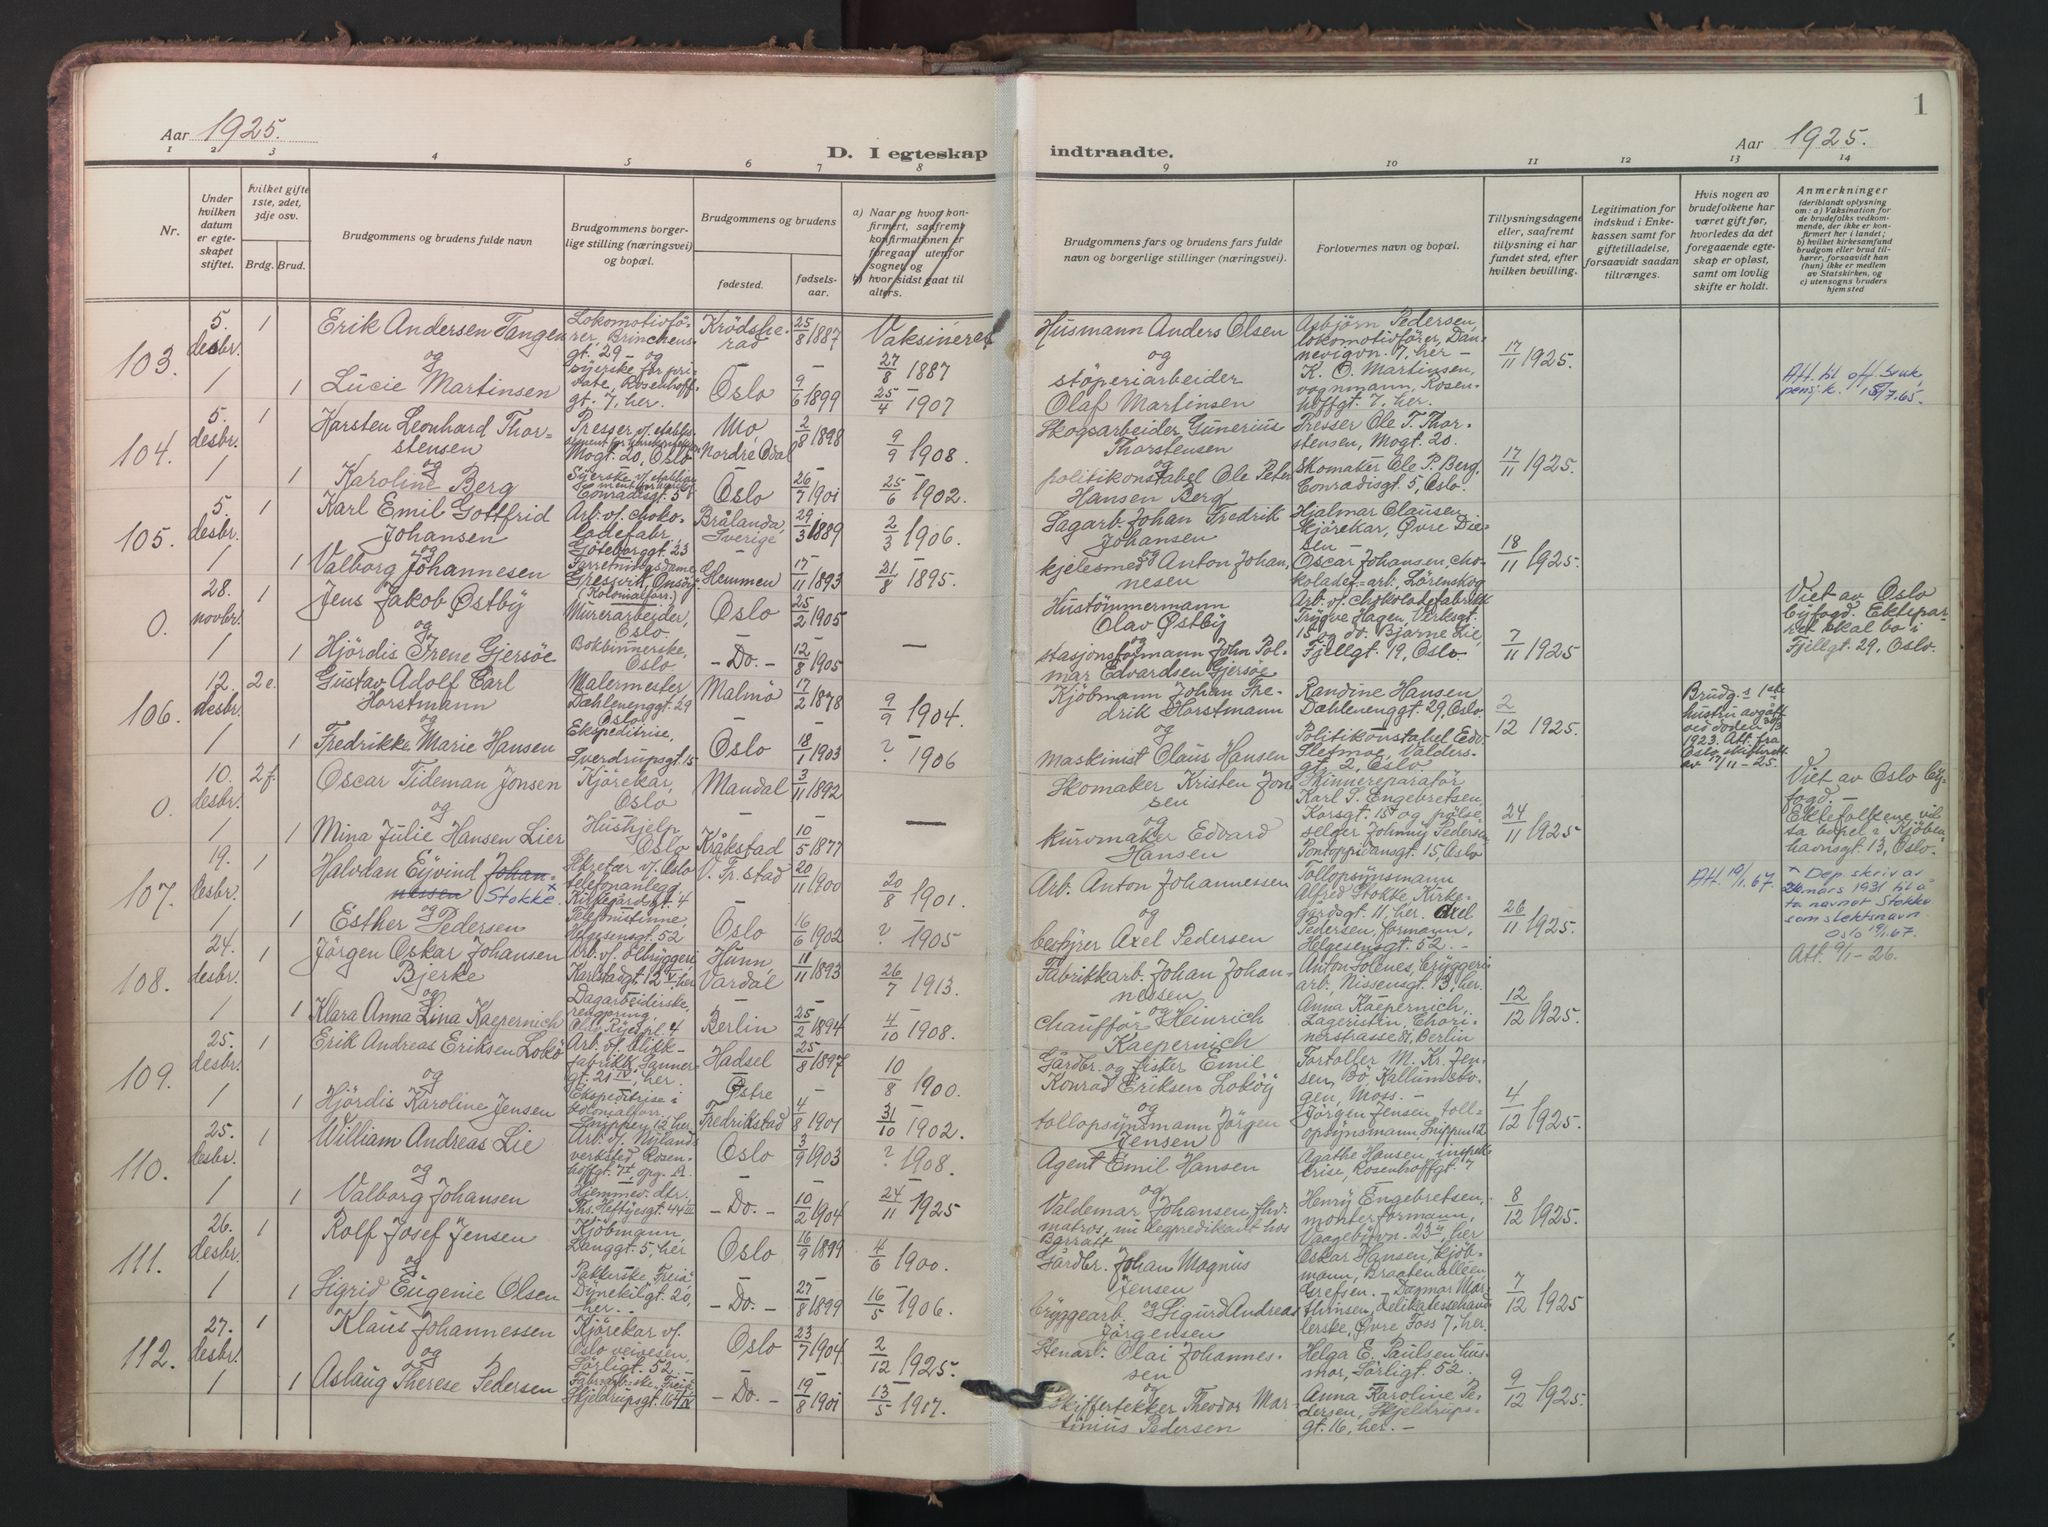 1
Aar 1925.
D. I egteskap indtraadte.
Aar 1925.
1 2 3 4 5 6 7 8 9 10 11 12 13 14
Nr.
Under hvilken datum er egteskapet stiftet.
Hvilket gifte 1ste, 2det, 3dje osv.
Brdg. Brud.
Brudgommens og brudens fulde navn
Brudgommens borgerlige stilling (næringsvei) og bopæl.
Brudgommens og brudens
fødested.
fødselsaar.
a) Naar og hvor konfirmert, saafremt konfirmationen er foregaat utenfor sognet, og
b) hvor sidst gaat til alters.
Brudgommens fars og brudens fars fulde navn og borgerlige stillinger (næringsvei).
Forlovernes navn og bopæl.
Tillysningsdagene eller, saafremt tillysning ei har fundet sted, efter hvilken bevilling.
Legitimation for indskud i Enkekassen samt for giftetilladelse, forsaavidt saadan tiltrænges.
Hvis nogen av brudefolkene har været gift før, hvorledes da det foregaaende egteskap er opløst, samt om lovlig skifte er holdt.
Anmerkninger
(deriblandt oplysning om: a) Vaksination for de brudefolks vedkommende, der ikke er konfirmert her i landet; b) hvilket kirkesamfund brudgom eller brud tilhører, forsaavidt han (hun) ikke er medlem av Statskirken, og c) utensogns bruders hjemsted
103. 5. desbr. 1 Erik Andersen Tangen Lokomotivförer, Brinchensgt. 29 - og Krödsherad 25/8 1887 Vaksineret 27/8 1887
Husmann Anders Olsen Asbjörn Pedersen, lokomotivförer, Dannevigvn. 7, her - 17/11 1925.
og
1 Lucie Martinsen Syerske for private, Rosenhoffgt. 7, her. Oslo 9/6 1899 25/4 1907
og stöperiarbeider Olaf Martinsen K. O. Martinsen, vognmann, Rosenhoffgt. 7, her.
Att. til off. bruk, pensj.k.
104. 5. desbr. 1 Karsten Leonhard Thorstensen Presser v/ Mogt. 20, Oslo Mo, Nordre Odal 2/8 1898 9/9 1908.
Skogsarbeider Gunerius Thorstensen Presser Ole T. Thorstensen, Mogt. 20. 17/11 1925.
og
1 Karoline Berg Syerske Conradisgt. 5 Oslo 26/7 1901 25/6 1902.
og politikonstabel Ole Peter Hansen Berg Skomaker Ole P. Berg, Conradisgt. 5, Oslo.
105. 5. desbr. 1 Karl Emil Gottfrid Johansen Arb. v/ chokoladefabr. Göteborggt. 23 Brålanda, Sverige 29/3 1889 2/3 1906.
Sagarb. Johan Fredrik Johansen Hjalmar Clausen, kjörekar, Övre 18/11 1925.
og
1 Valborg Johannesen Forretningsdame, Gressvik, Onsöy (Kolonialforr.) Hemmen 17/11 1893 21/8 1895.
og kjelesmed Anton Johannesen Oscar Johansen, chokoladef.-arb. Lörenskog
0. 28. novbr. 1 Jens Jakob Østby Murerarbeider, Oslo. Oslo 25/2 1905
Hustömmermann Olav Østby Arb. v/ chokoladefabrikk Trygve Hagen, Verksgt. 15 og do. Bjarne Lie, Fjellgt. 19, Oslo. 7/11 1925
Viet av Oslo byfogd. Ekteparret skal bo i Fjellgt. 29, Oslo.
og
1 Hjördis Irene Gjersöe Bokbinnerske, Oslo - Do. - 12/8 1905 —
og stasjonsformann John Polmar Edvardsen Gjersöe
106. 12. desbr. 2 e. Gustav Adolf Carl Horstmann Malermester, Dælenenggt. 29 Oslo Malmö 17/2 1878 9/9 1904.
Kjöbmann Johan Fredrik Horstmann Randine Hansen Dæhlenenggt. 29, Oslo. 2/12 1925
Brudg.s 1ste hustru avgått ved döden 30/3 1923. Att. fra Oslo skifterett av 17/11 - 25.
og
1 Fredrikke Marie Hansen Ekspeditrise, Sverdrupsgt. 15 Oslo 18/1 1903 ? 1906
og maskinist Claus Hansen Politikonstabel Edv. Sletmoe, Valdersgt. 2, Oslo
0. 10. desbr. 2 f. Oscar Tideman Jonsen Kjörekar, Oslo Mandal 3/11 1892
Skomaker Kristen Jonsen Skinnereparatör Karl S. Engebretsen, Korsgt. 15 og pölseselger Johnny Pedersen Pontoppidansgt. 15, Oslo 24/11 1925
Viet av Oslo byfogd. - Ektefolkene vil ta bopel i Kjöbenhavnsgt. 13, Oslo.
og
1 Mina Julie Hansen Lier Hushjelp, Oslo Kråkstad 10/5 1877 —
og kurvmaker Edvard Hansen
107. 19. desbr. 1 Halvdan Eyvind Johannessen Stokke × Sekretær v/ Oslo telefonanlegg Kildegårdsgt. 4 V. Fr.stad 20/11 1900 20/8 1901.
Arb. Anton Johannessen Tollopsynsmann Alfred Stokke, Kirkegårdsgt. 11, her. 26/11 1925.
Att. 19/1.67.
× Dep. skriv av 24. mars 1931 til å ta navnet Stokke som slektsnavn. Oslo 19/1.67.
og
1 Esther Pedersen Telefonistinne, Helgesensgt. 52 Oslo 16/6 1902 ? 1905
og bestyrer Axel Pedersen Axel Pedersen, formann, Helgesensgt. 52. -
108. 24. desbr. 1 Jörgen Oskar Johansen Bjerke Arb. v/ ölbryggeri Karlstadgt. 12 V, her Hunn Vardal 11/11 1893 26/7 1913.
Fabrikkarb. Johan Johannessen Anton Solenes, bryggeriarb., Nissensgt. 13, her. 12/12 1925.
Att. 9/1 - 26.
og
1 Klara Anna Lina Kaepernich Dagarbeiderske, rengjöring, Olav Ryes pl. 4 Berlin 25/2 1894 4/10 1908.
og chaufför Heinrich Kaepernich Anna Kaepernich, Lageristin, Chorinerstrasse 81, Berlin
109. 25. desbr. 1 Erik Andreas Eriksen Lokö Arb. v/ blikkfabrikk, Hannergt. 21 IV, her. Hadsel 25/8 1897 10/8 1900.
Gårdbr. og fisker Emil Konrad Eriksen Loköy Fortoller M. Kr. Jensen, Bö, Kallumskogen, Moss. - 4/12 1925.
og
1 Hjördis Karoline Jensen Ekspeditrise i kolonialforr. Snippen 12 her. Östre Fredrikstad 4/8 1901 31/10 1902.
og tollopsynsmann Jörgen Jensen Jörgen Jensen, tollopsynsmann, Snippen 12
110. 25. desbr. 1 William Andreas Lie Arb. v. Nylands verksted Rosenhoffgt. 7 II opg. A. Oslo 3/9 1903 ? 1908.
Agent Emil Hansen Agathe Hansen, inspektrise, Rosenhoffgt. 7 8/12 1925.
og
1 Valborg Johansen Hjemmev. dtr. Ths. Heftyesgt. 44 III - Do. - 10/2 1904 24/11 1925
og Valdemar Johansen fhv. matros, nu legpredikant hos Barratt Henry Engebretsen, montörformann, Vaagebyvn. 23, her
111. 26. desbr. 1 Rolf Josef Jensen Kjöbmann, Langgt. 5, her Oslo 16/9 1899 4/6 1900.
Gårdbr. Johan Magnus Jensen Oskar Hansen, kjöbmann, Braatenalleen, Grefsen. - 7/12 1925
og
1 Sigrid Eugenie Olsen Pakkerske, Freia, Dynekilgt. 20, her. - - Do. - 27/8 1899 16/5 1906.
og bryggearb. Sigurd Andreas Jörgensen Dagmar Marthinsen, delikatessehandlerske, Övre Foss 7, her.
112. 27. desbr. 1 Klaus Johannessen Kjörekar v/ Oslo veivesen, Sörligt. 52 - Oslo 23/7 1904 2/12 1925.
Stenarb. Olai Johannessen Helga E. Paulsen husmor, Sörligt. 52. 9/12 1925.
og
1 Aslaug Therese Pedersen Fabrikarb.ske, Freia, Skjeldrupsgt. 16 - Do. - 19/8 1901 13/5 1917.
og Skiffertekker Theodor Martinius Pedersen Anna Karoline Pedersen, Skjeldrupsgt. 16, her. -